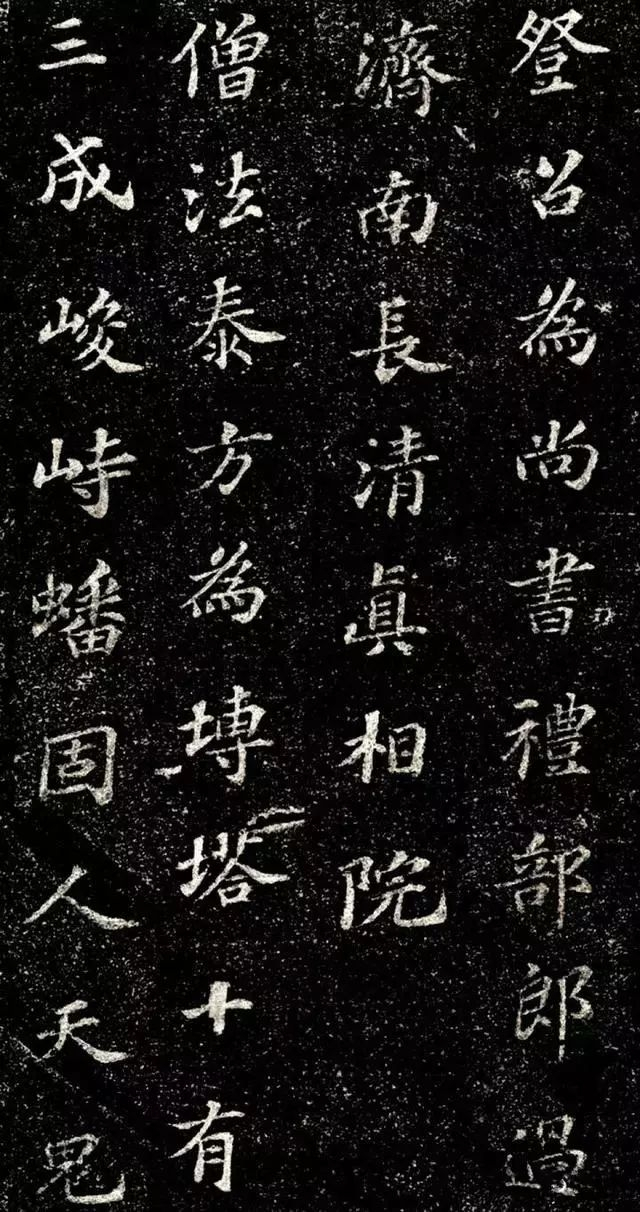 登召為尚書禮部郎過
濟南長清眞相院
僧法泰方為塼塔十有
三成峻峙蟠固人天鬼